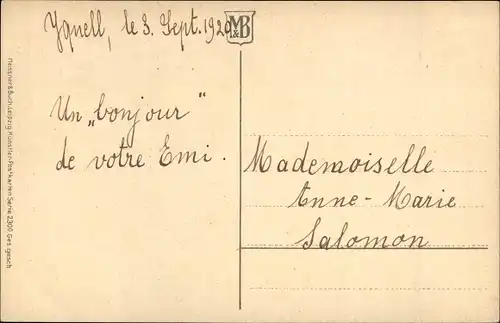 Yquell, le 3. Sept. 1920
M&B
Un „bonjour“
de votre Emi.
Mademoiselle
Anne-Marie
Salomon
Meissner & Buch, Leipzig Künstler-Postkarten Serie 2300 Ges. gesch.